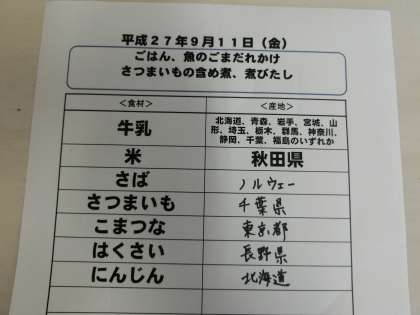 平成27年9月11日（金）
ごはん、魚のごまだれかけ
さつまいもの含め煮、煮びたし
＜食材＞ ＜産地＞
牛乳 北海道、青森、岩手、宮城、山
形、埼玉、栃木、群馬、神奈川、
静岡、千葉、福島のいずれか
米 秋田県
さば ノルウェー
さつまいも 千葉県
こまつな 東京都
はくさい 長野県
にんじん 北海道